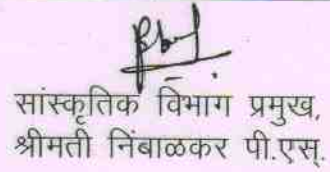 सांस्कृतिक विभाग प्रमुख,
श्रीमती निंबाळकर पी.एस्.